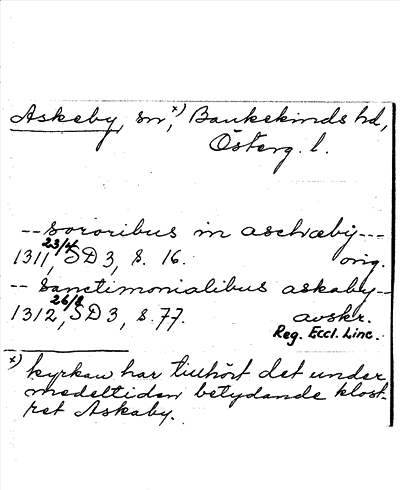 Askeby, sn, x) Bankekinds hd,
Österg. l.
-- sororibus in aschæby ---
1311 23/4, SD 3, s. 16. orig.
-- sanctimonialibus askaby --
1312 26/8, SD 3, s. 77. avskr.
Reg. Eccl. Linc.
x) kyrkan har tillhört det under
medeltiden betydande klost-
ret Askaby.